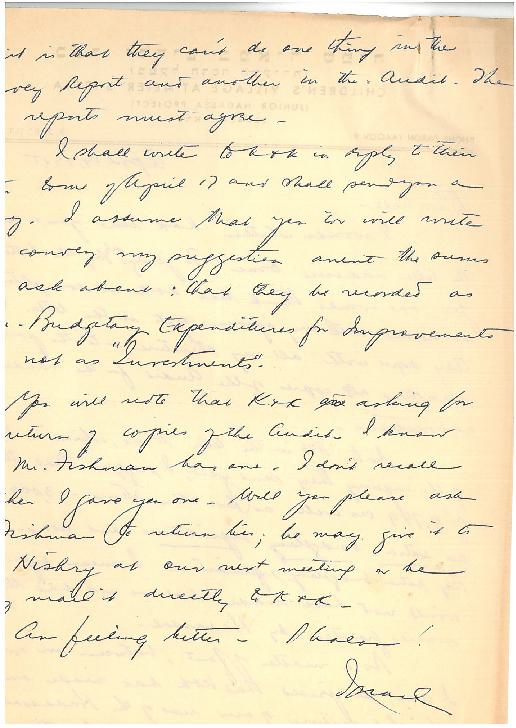 is that they can't do one thing in the
Report and another in the Audit. The
reports must agree -
I shall write to K+K in reply to their
of April 17 and shall send you a
I assume that you too will write
convey my suggestion anent the sums
ask about: that they be recorded as
Budgetary Expenditures for Improvements
not as "Investments".
You will note that K+K are asking for
return of copies of the Audit. I know
Mr. Fishman has one. I don't recall
I gave you one - Will you please ask
Fishman to return his; he may give it to
Nishry at our next meeting or he
mail it directly to K+K -
Am feeling better - Shalom!
CHILDREN'S VILLAGE
(JUNIOR HADASSA PROJECT)